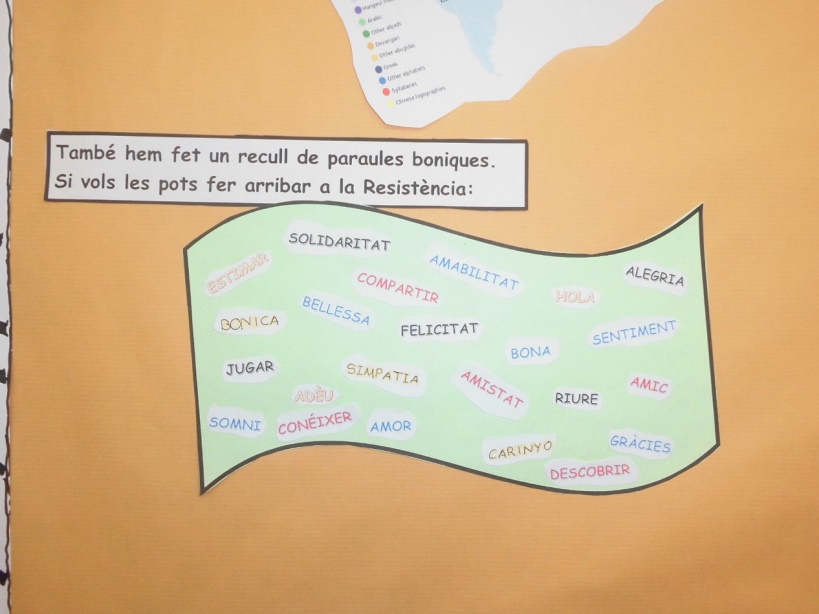 Arabic
Other abjads
Devangari
Other abugidas
Greek
Other alphabets
Syllabaries
Chinese logographies
També hem fet un recull de paraules boniques.
Si vols les pots fer arribar a la Resistència:
SOLIDARITAT
ESTIMAR
AMABILITAT
ALEGRIA
COMPARTIR
HOLA
BELLESSA
BONICA
FELICITAT
SENTIMENT
BONA
JUGAR
SIMPATIA
AMISTAT
AMIC
ADÈU
RIURE
SOMNI
CONÉIXER
AMOR
CARINYO
GRÀCIES
DESCOBRIR